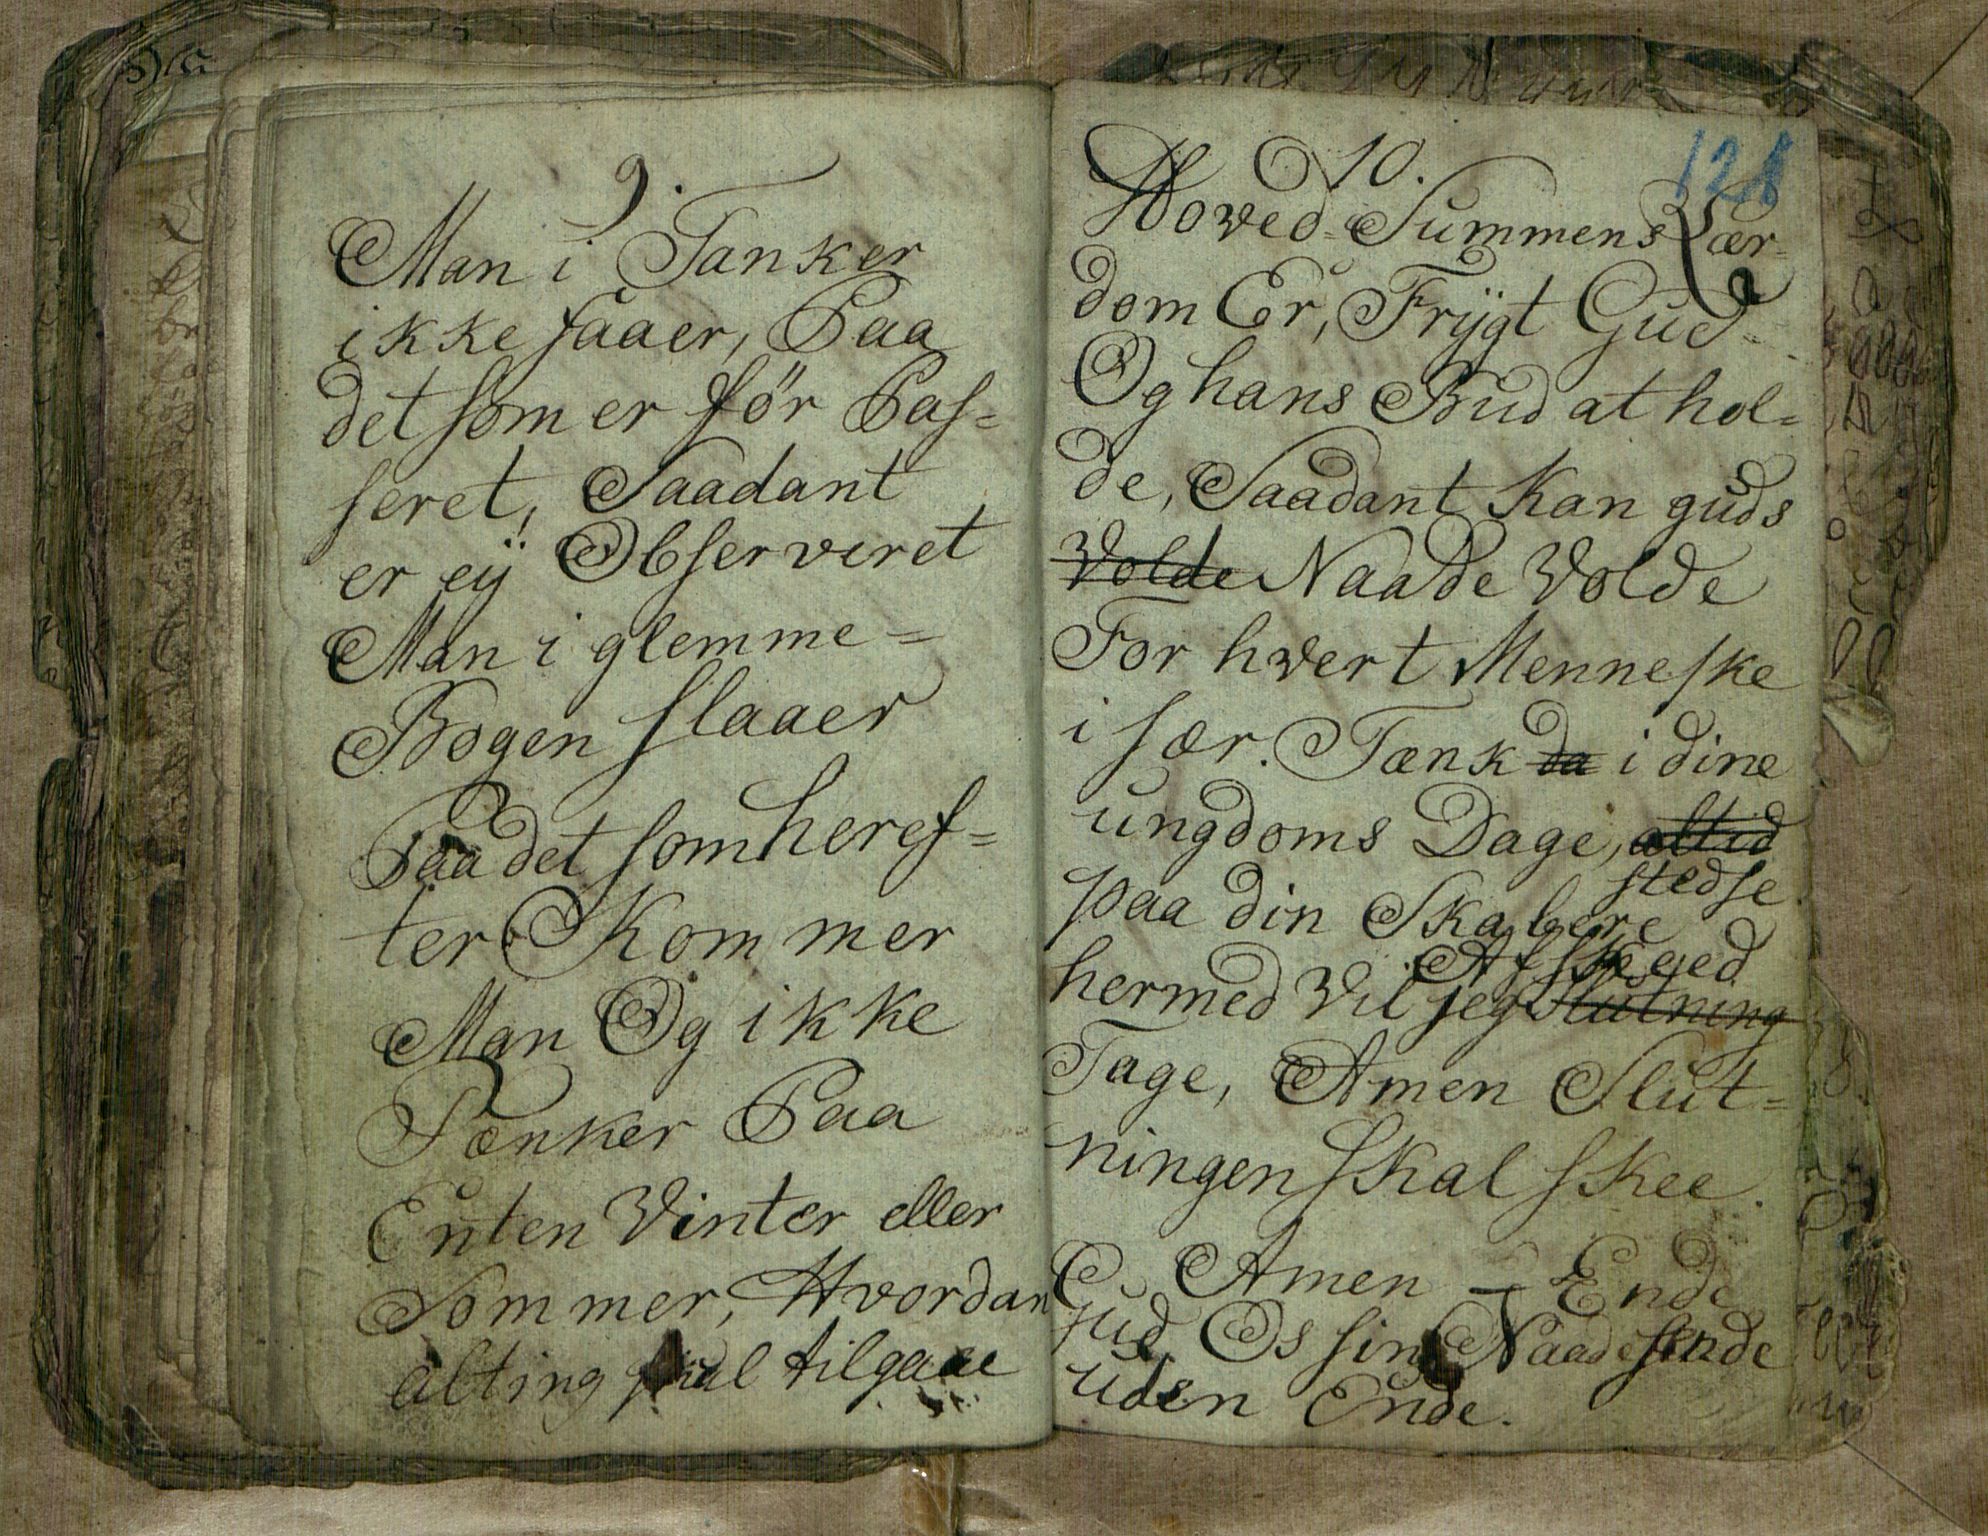 9.
Man i Tanker
ikke faaer, Paa
det som er før Pas=
seret, Saadant
er eÿ Observeret
Man i glemme=
Bogen slaaer
Paa det som heref=
ter Kommer
Man Og ikke
Tænker Paa
Enten Vinter eller
Sommer, Hvordan
alting skal tilgaae
10.
128
Hoved=Summens Lær=
dom Er, Frÿgt Gud
Og hans Bud at hol=
de, Saadant Kan guds
Volde Naade Volde
For hvert Menneske
i sær. Tænk da i dine
ungdoms Dage, altid
stedse
paa din Skabere
Afskeed
hermed Vil jeg Slutning
Tage, Amen Slut=
ningen skal skee.
Amen – Ende
Gud Os sin Naade sende
uden Ende.